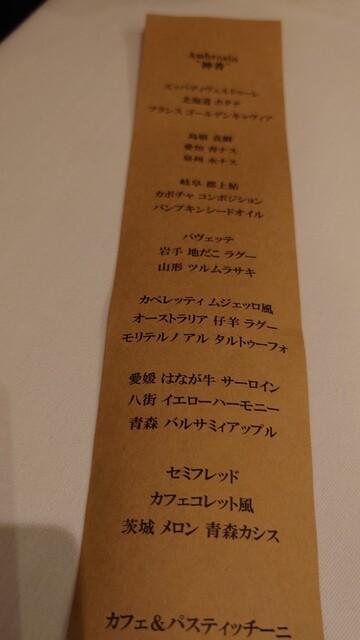 Ambrosia
"神饌"
ズッパディヴェルドゥーレ
北海道 ホタテ
フランス ゴールデンキャヴィア
島根 真鯛
愛知 青ナス
泉州 水ナス
岐阜 郡上鮎
カボチャ コンポジション
パンプキンシードオイル
バヴェッテ
岩手 地だこ ラグー
山形 ツルムラサキ
カペレッティ ムジェッロ風
オーストラリア 仔羊 ラグー
モリテルノ アル タルトゥーフォ
愛媛 はなが牛 サーロイン
八街 イエローハーモニー
青森 バルサミィアップル
セミフレッド
カフェコレット風
茨城 メロン 青森カシス
カフェ&パスティッチーニ